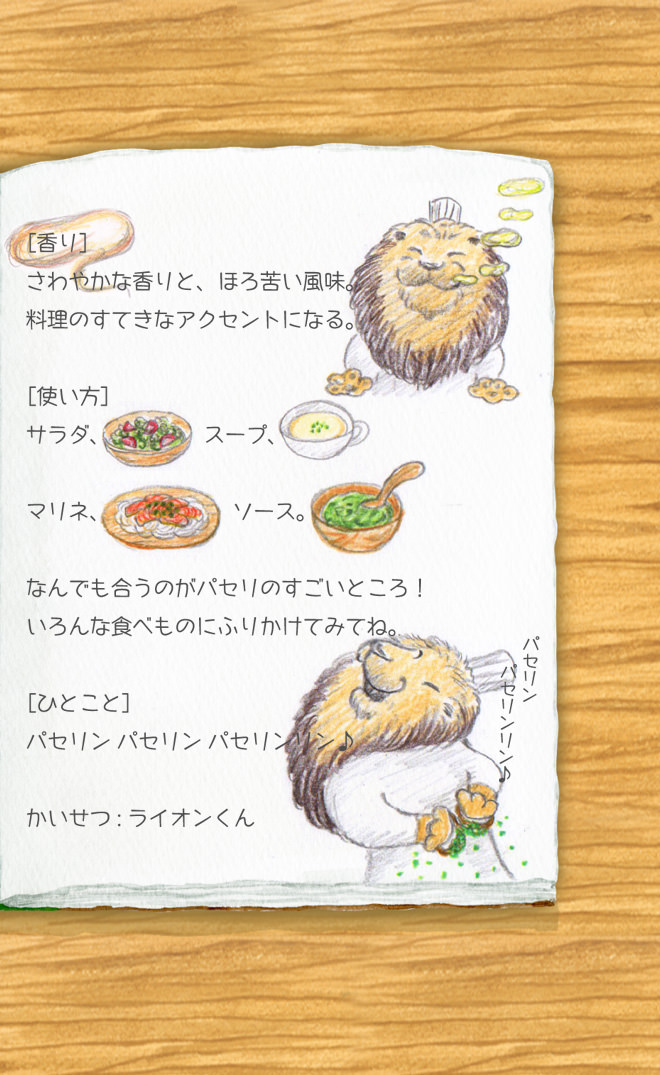 [香り]
さわやかな香りと、ほろ苦い風味。
料理のすてきなアクセントになる。
[使い方]
サラダ、 スープ、
マリネ、 ソース。
なんでも合うのがパセリのすごいところ！
いろんな食べものにふりかけてみてね。
[ひとこと]
パセリン パセリン パセリンリン♪
パセリン
パセリンリン♪
かいせつ：ライオンくん